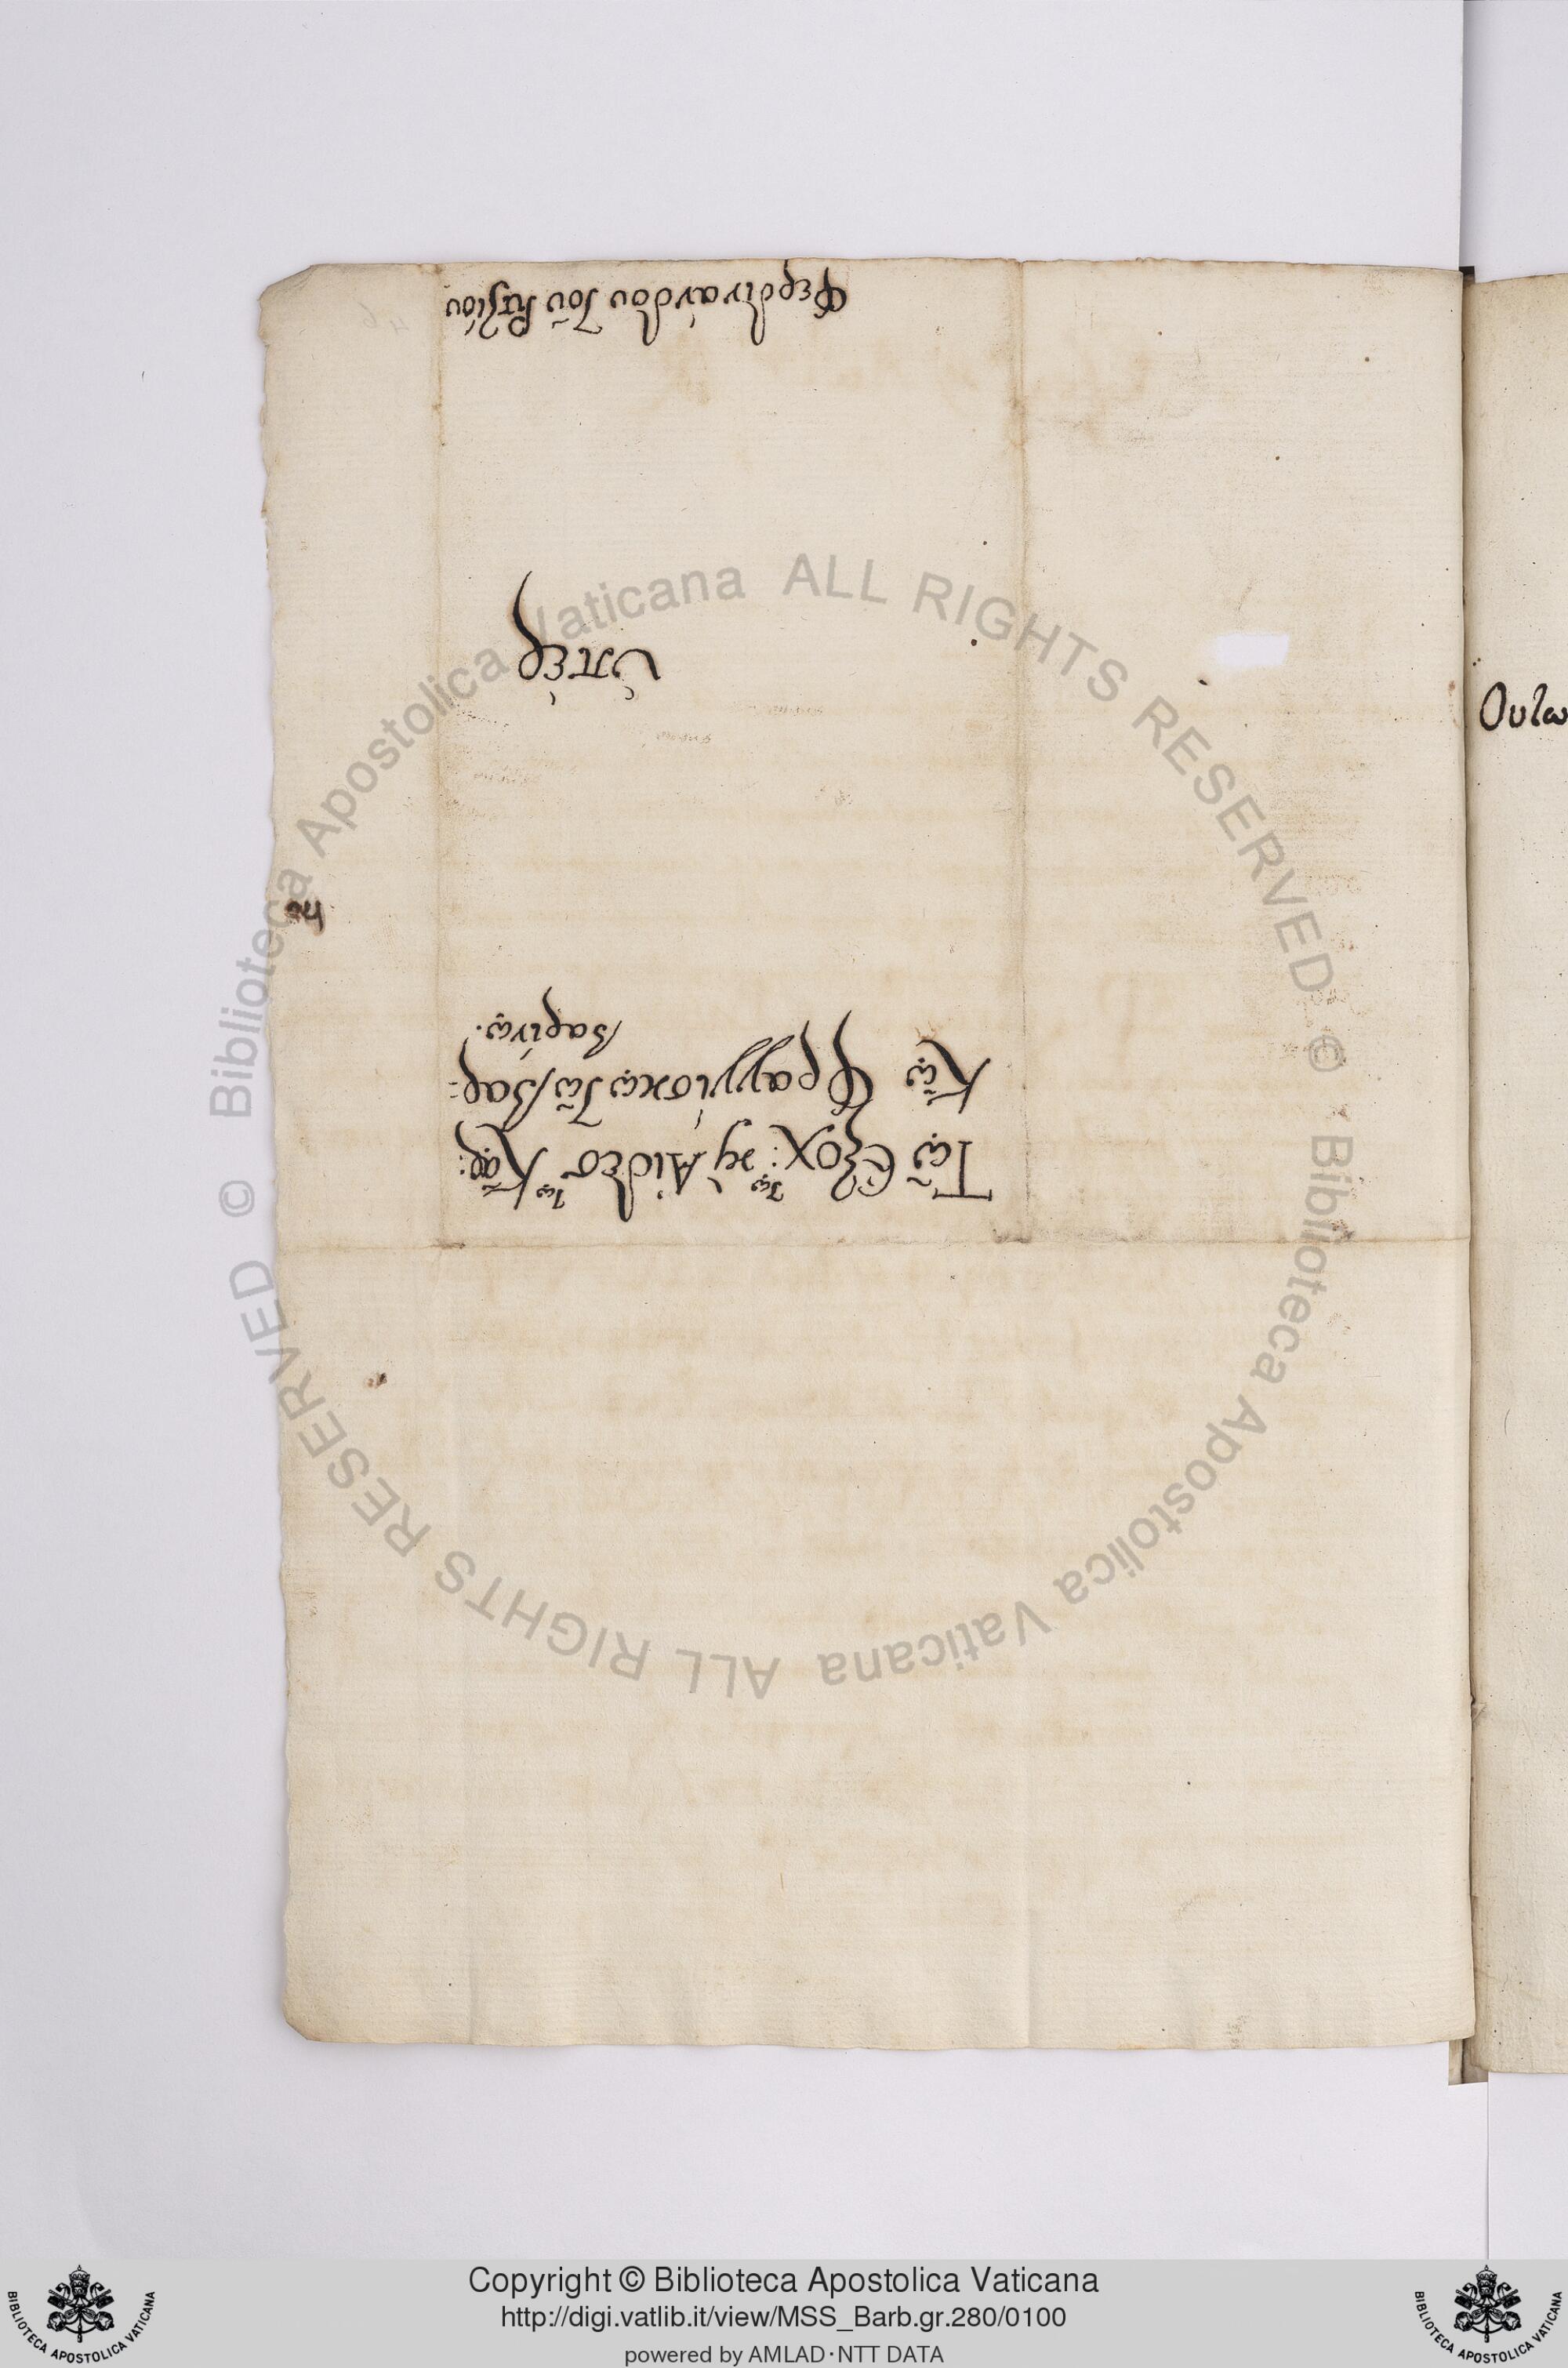 Τῷ Ἐξοχ:τῳ κỳ Αἰδεσ τῳ Κᾳρ:
Κῷ Φραγγίσκῳ τῷ Βαρ:
βαρίνῳ.
ὑπέρ
Φερδινάνδου τοῦ
Ουτω
Biblioteca Apostolica Vaticana ALL RIGHTS RESERVED ©
Biblioteca Apostolica Vaticana ALL RIGHTS RESERVED ©
Copyright © Biblioteca Apostolica Vaticana
http://digi.vatlib.it/view/MSS_Barb.gr.280/0100
powered by AMLAD·NTT DATA
BIBLIOTECA APOSTOLICA VATICANA
BIBLIOTECA APOSTOLICA VATICANA